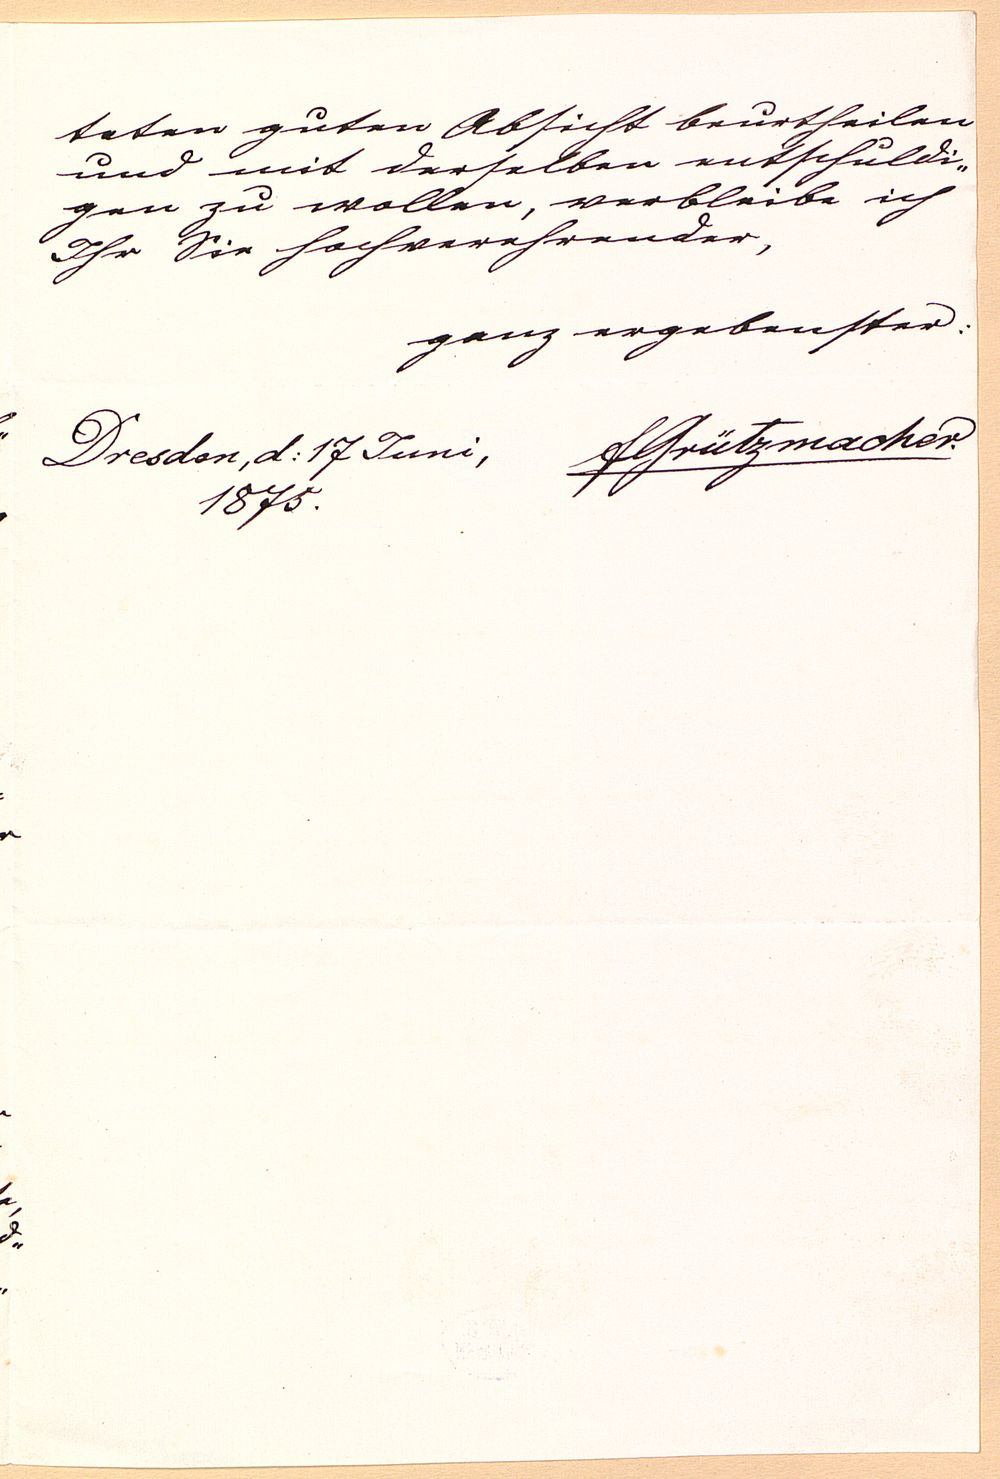 teten guten Absicht beurtheilen
und mit derselben entschuldi„
gen zu wollen, verbleibe ich
Ihr Sie hochverehrender,
ganz ergebenster:
Dresden, d: 17 Juni,
1875.
FGrützmacher.